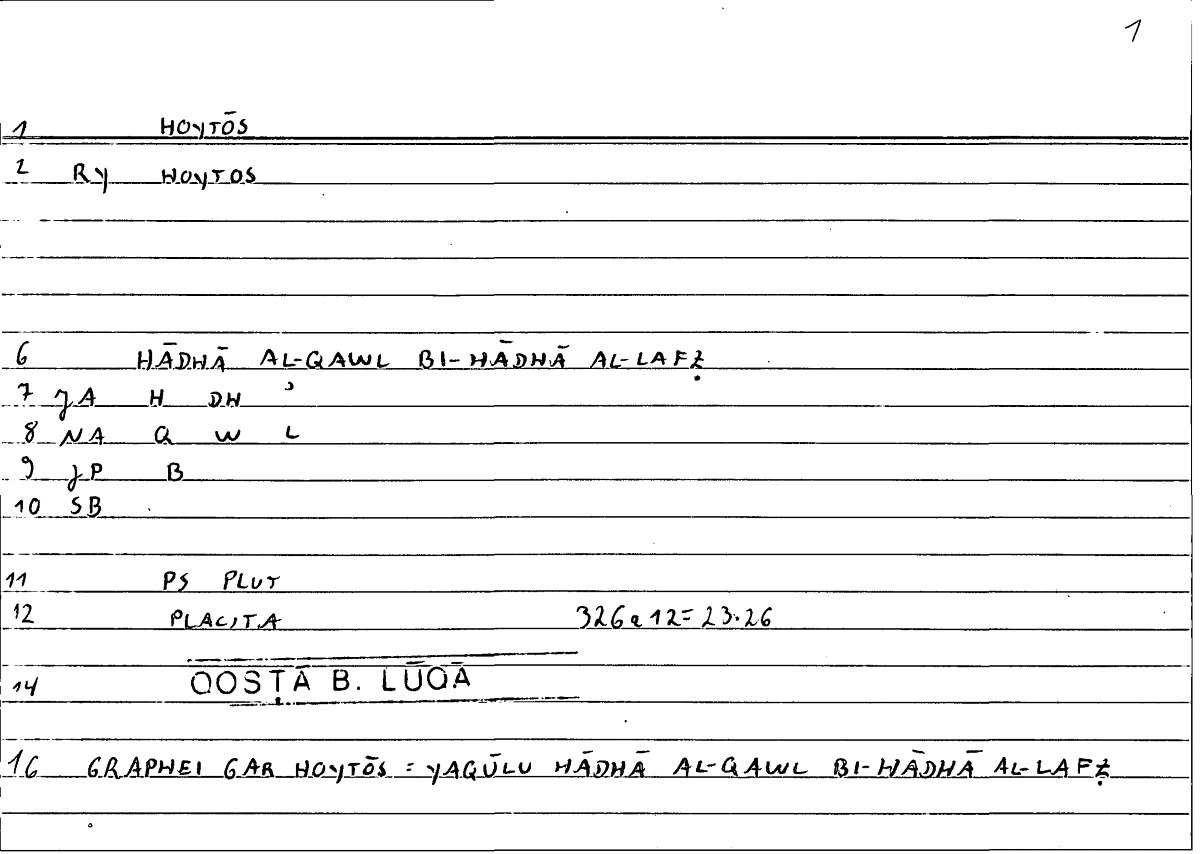 1
1 HOYTŌS
2 RY HOYTOS
6 HĀDHĀ AL-QAWL BI-HĀDHĀ AL-LAFẒ
7 JA H DH ʾ
8 NA Q W L
9 JP B
10 SB
11 PS PLUT
12 PLACITA 326a12=23.26
14 QOSṬĀ B. LŪQĀ
16 GRAPHEI GAR HOYTŌS = YAQŪLU HĀDHĀ AL-QAWL BI-HĀDHĀ AL-LAFẒ